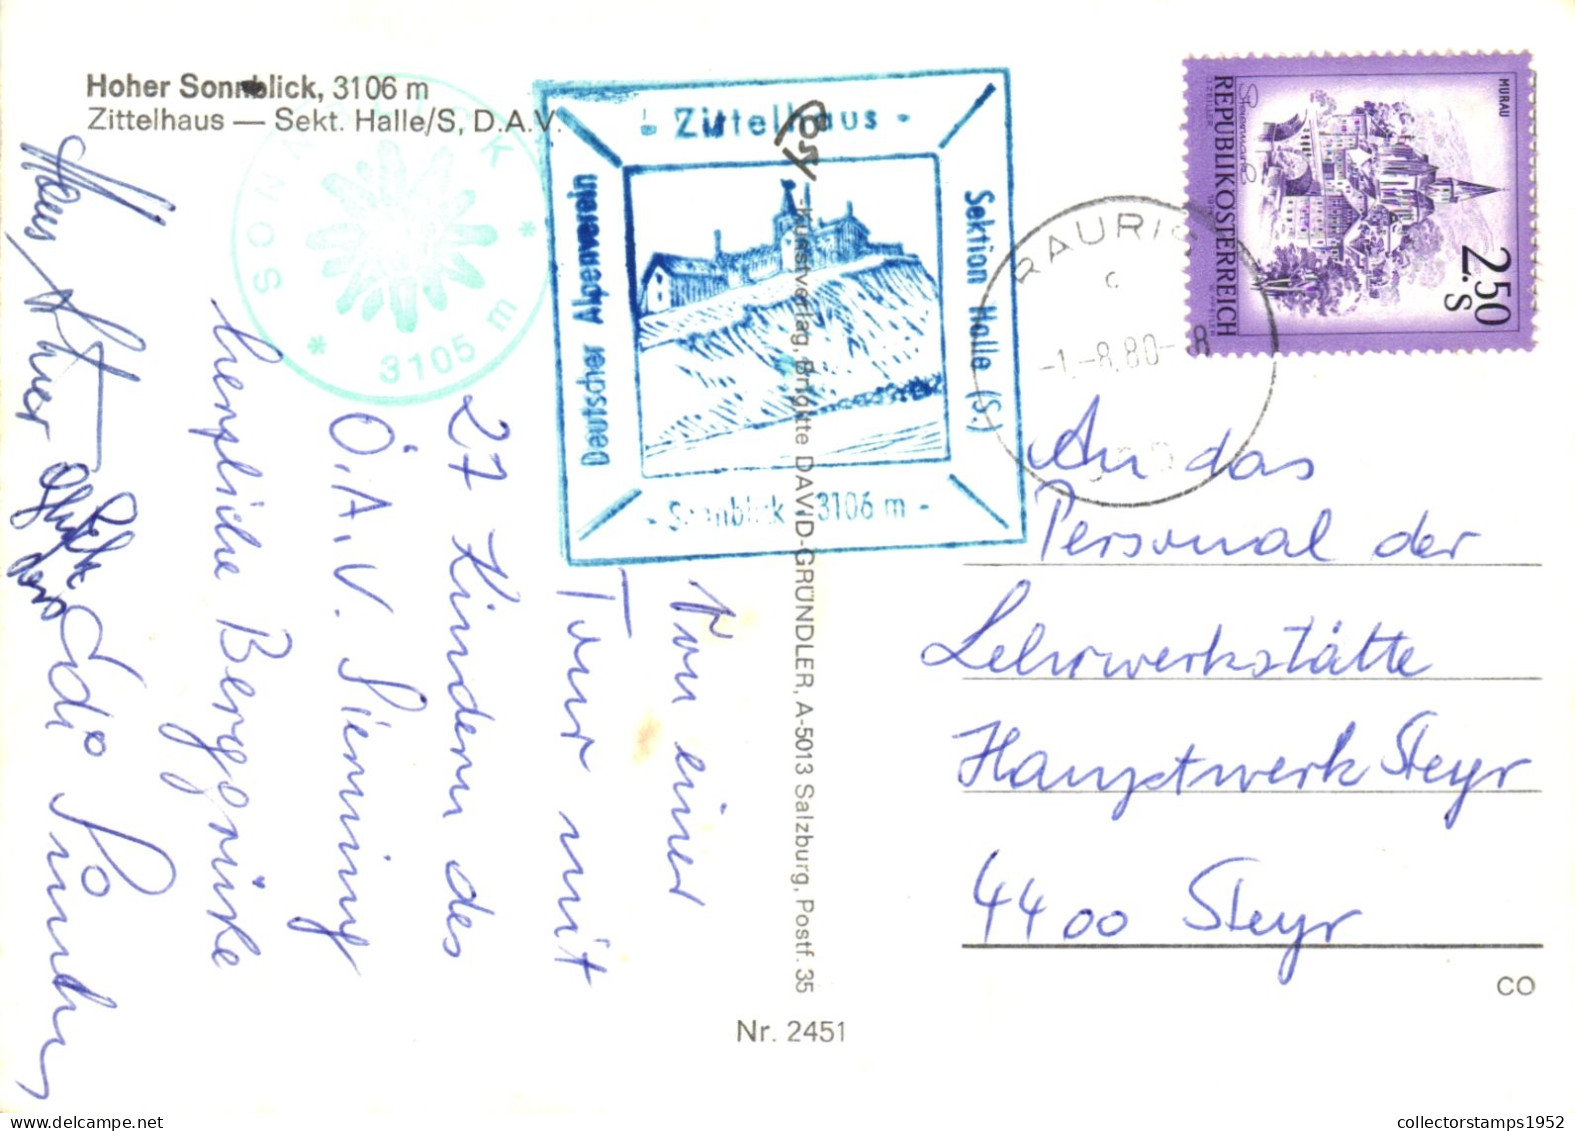 Hoher Sonnblick, 3106 m
Zittelhaus — Sekt. Halle/S, D.A.V.
SONNBLICK
* 3105 m *
- Zittelhaus -
Deutscher Alpenverein
Sektion Halle (S.)
- Sonnblick 3106 m -
RAURIS
c
-1.-8.80-8
MURAU
REPUBLIK ÖSTERREICH
2.50
S
Von einer
Tour mit
27 Kindern des
Ö.A.V. Sierning
herzliche Berggrüße
Edi
An das
Personal der
Lehrwerkstätte
Hauptwerk Steyr
4400 Steyr
-Kunstverlag, Brigitte DAVID-GRÜNDLER, A-5013 Salzburg, Postf. 35
Nr. 2451
CO
collectorstamps1952